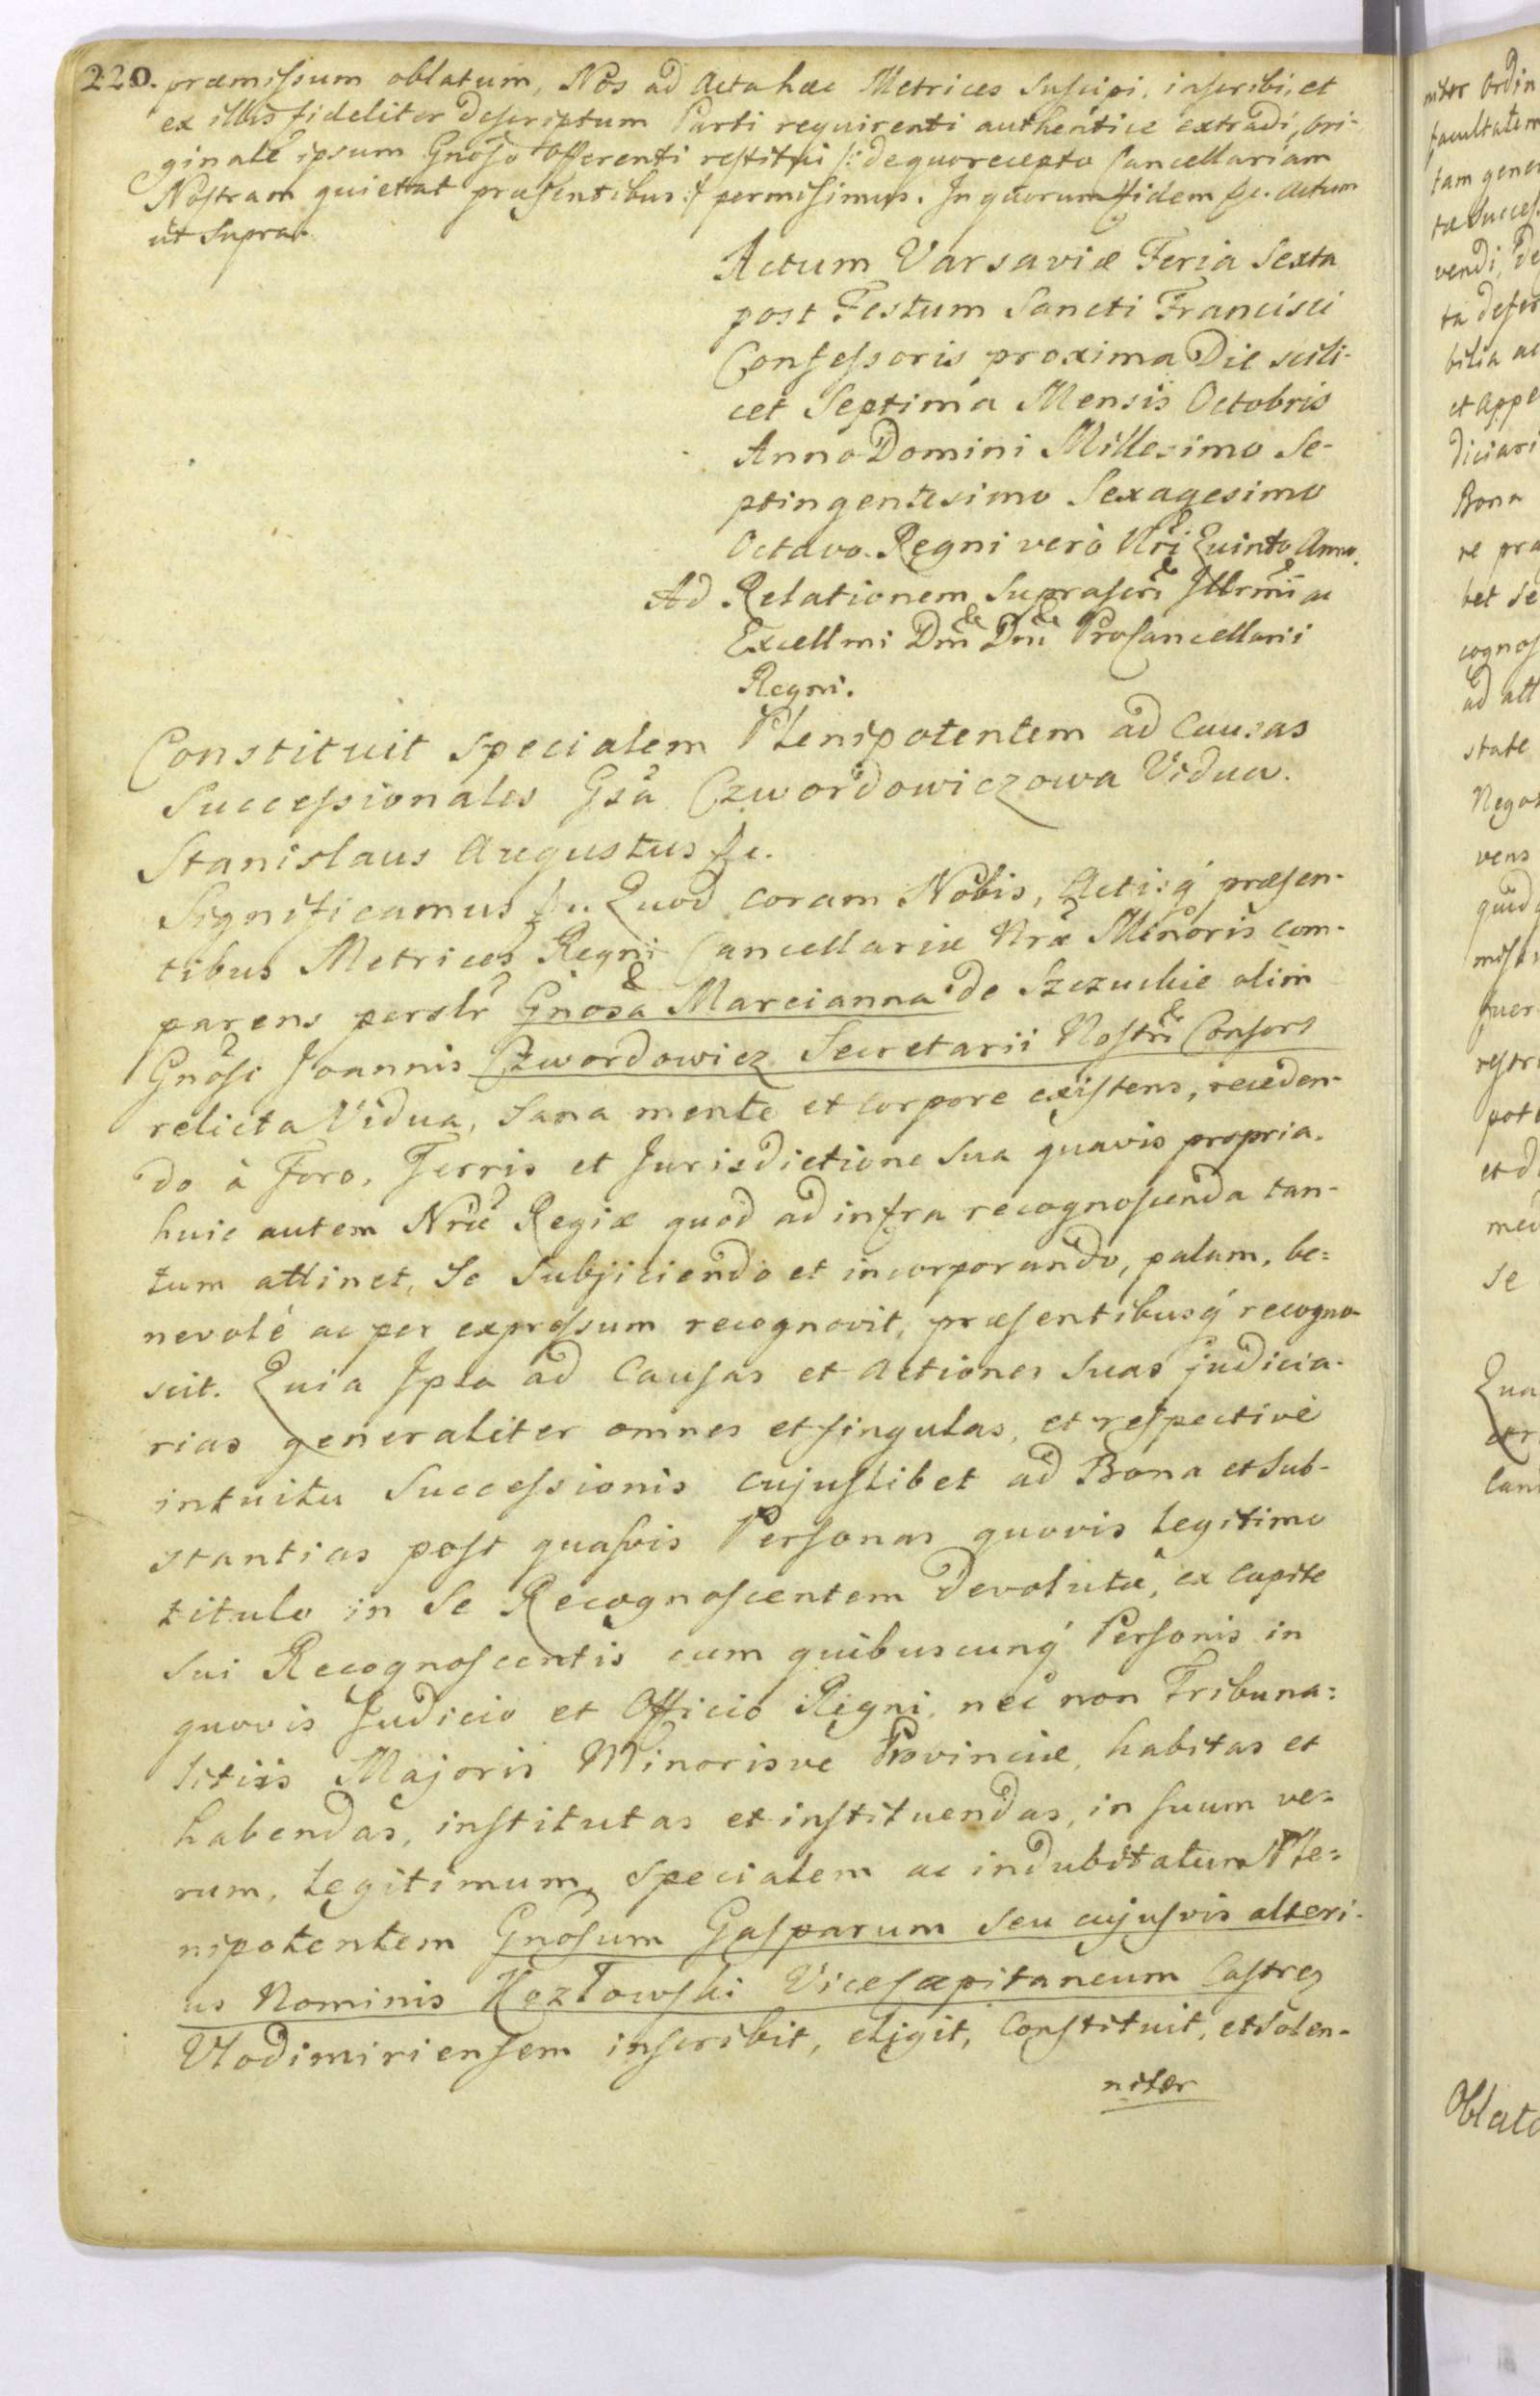 220. præmissum oblatum, Nos ad Acta hæc Metrices Suscipi, inscribi, et
ex illis fideliter descriptum Parti requirenti authentice extradi, ori-
ginale ipsum Gnoso Offerenti restitui /: de quo recepto Cancellariam
Nostram quietat præsentibus :/ permisimus. In quorum fidem &c. Actum
ut Supra.
Actum Varsaviæ Feria Sexta
post Festum Sancti Francisci
Confessoris proxima Die scili-
cet Septima Mensis Octobris
Anno Domini Millesimo Se-
ptingentesimo Sexagesimo
Octavo. Regni verò Nri Quinto Anno.
Ad Relationem Suprascri Illrmi ac
Excellmi Dni Dni ProCancellarii
Regni.
Constituit specialem Plenipotentem ad Causas
Successionales Gsa Czwordowiczowa Vidua.
Stanislaus Augustus &c.
Significamus &c. Quod coram Nobis, Actisq præsen-
tibus Metrices Regni Cancellariæ Nræ Minoris com-
parens persltr Gnosa Marcianna de Szczuckie olim
Gnosi Joannis Czwordowicz Secretarii Nostri Consors
relicta Vidua, Sana mente et corpore existens, receden-
do à Foro, Terris et Jurisdictione Sua quavis propria,
huic autem Nræ Regiæ quod ad infra recognoscenda tan-
tum attinet, Se Subjiciendo et incorporando, palam, be=
nevolé ac per expressum recognovit, præsentibusq recogno-
scit. Quia Ipsa ad Causas et Actiones Suas judicia-
rias generaliter omnes et singulas, et respectivè
intuitu Successionis cujuslibet ad Bona et Sub-
stantias post quasvis Personas quovis legitimo
titulo in Se Recognoscentem Devolutæ, ex capite
sui Recognoscentis cum quibuscunq Personis in
quovis Judicio et Officio Regni, nec non Tribuna=
litiis Majoris Minorisve Provinciæ, habitas et
habendas, institutas et instituendas, in suum ve=
rum, legitimum, specialem ac indubitatum Ple=
nipotentem Gnosum Gasparum seu cujusvis alteri-
us Nominis Kozłowski Vicescapitaneum Castrem
Vlodimiriensem inscribit, eligit, Constituit, et Solen-
niter